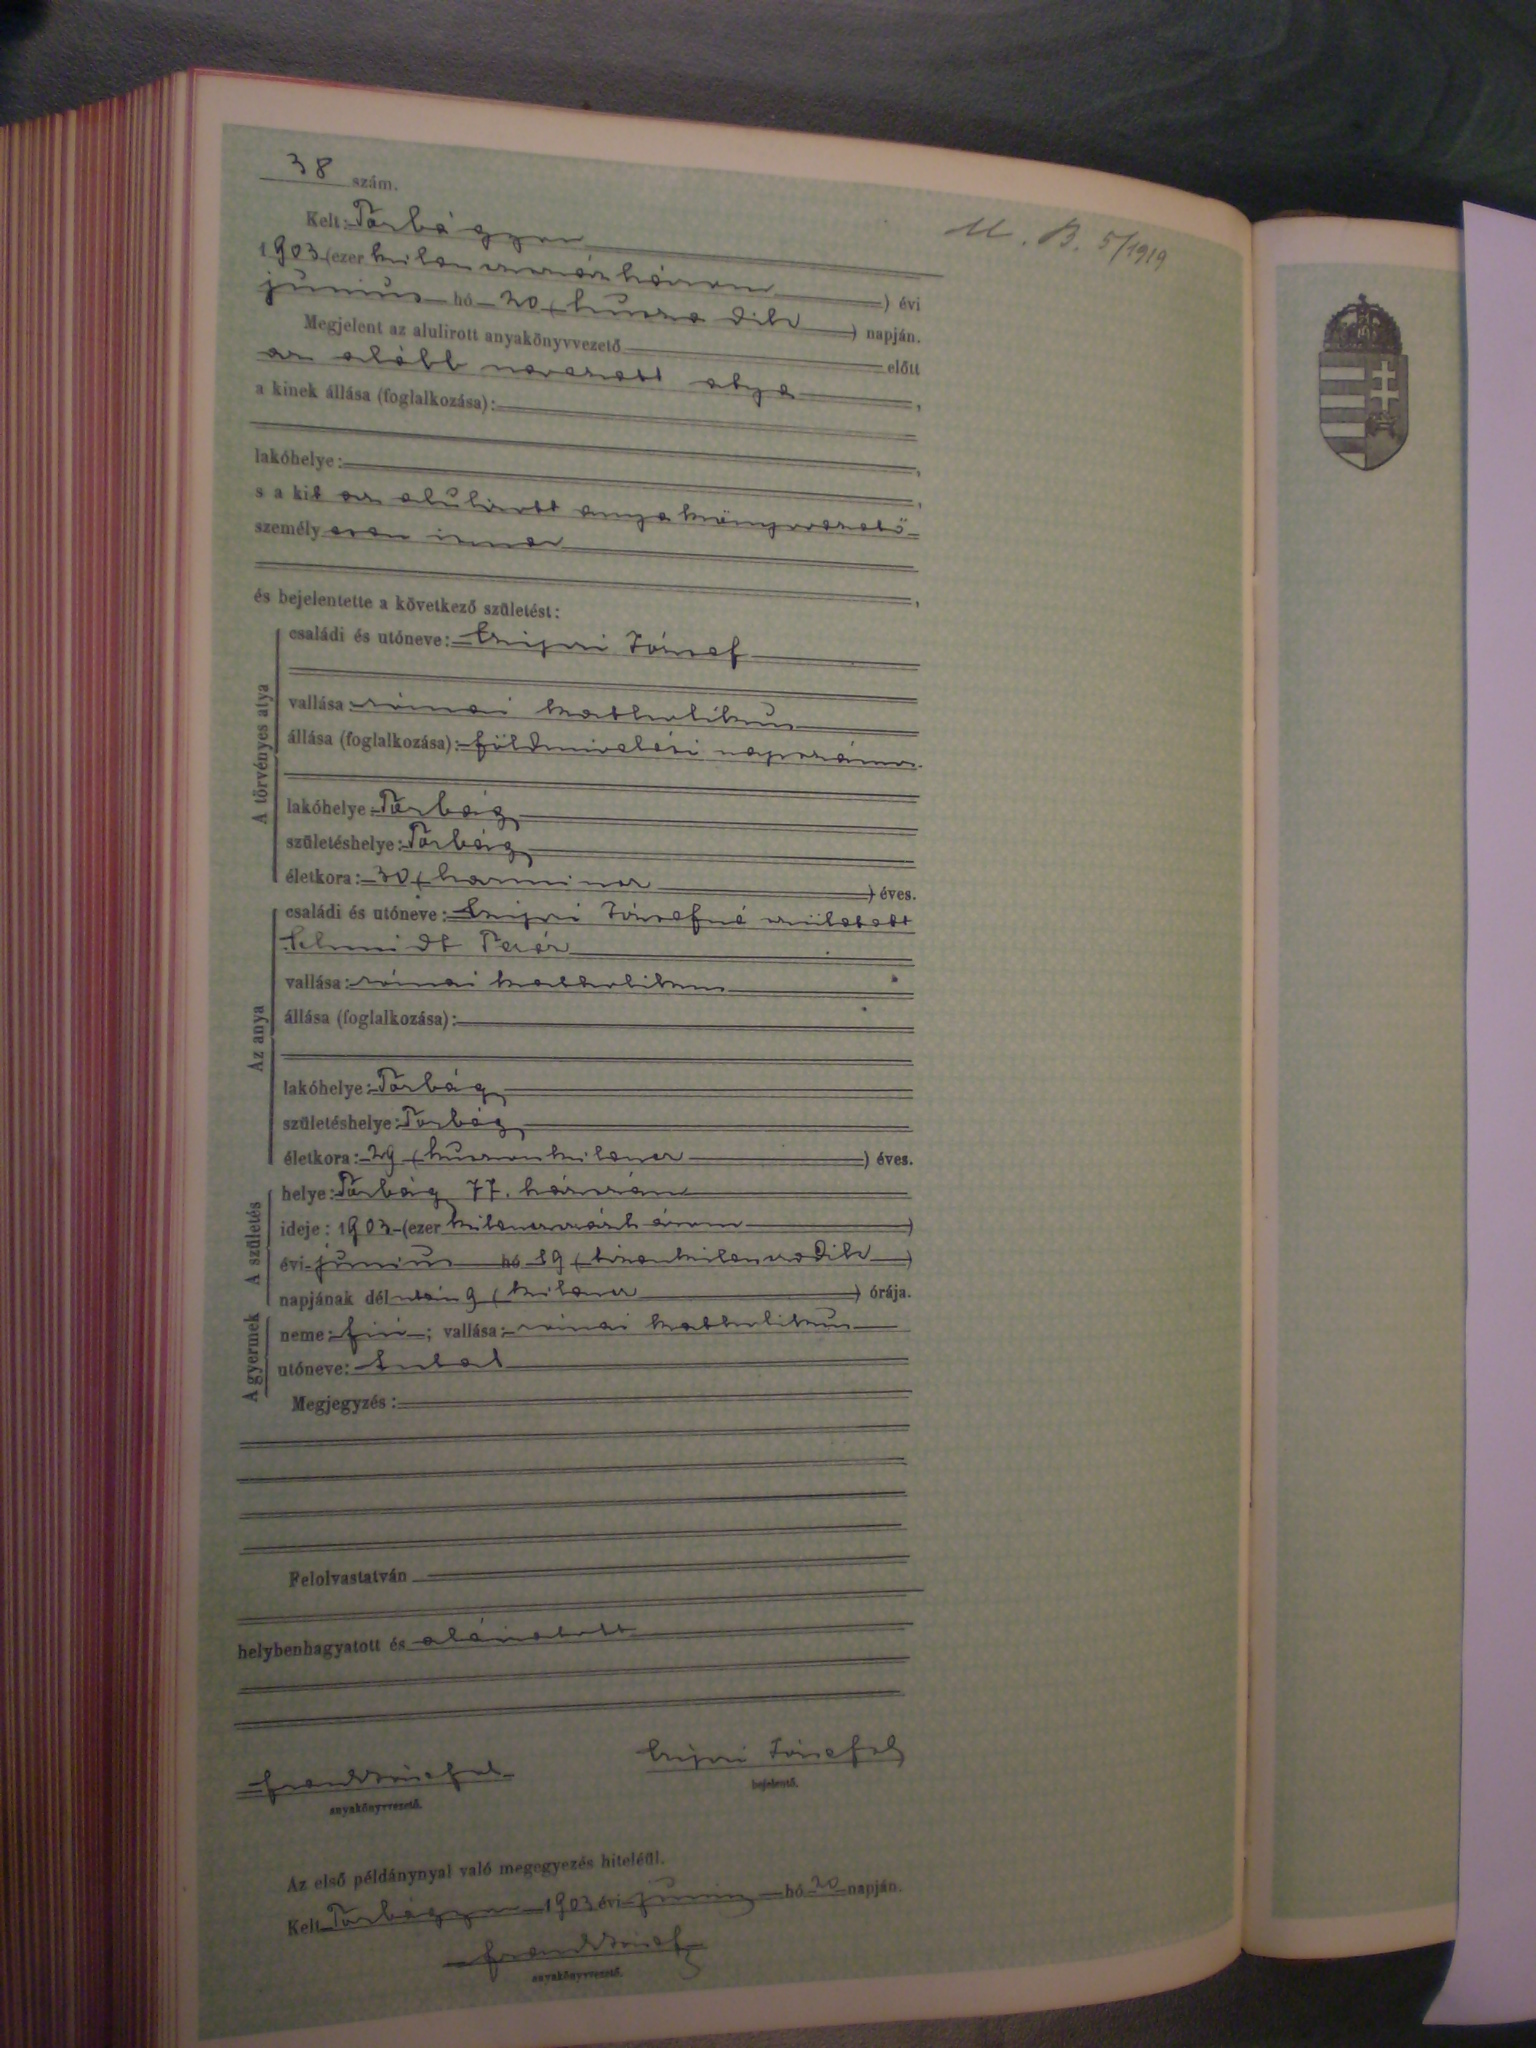 38 szám.
Kelt: Torbágyon
M. B. 5/1919
1903 (ezerkilenczszázhárom) évi
június hó 20 (huszadik) napján.
Megjelent az alulirott anyakönyvvezető előtt
az alább nevezett atya,
a kinek állása (foglalkozása):
lakóhelye:
s a kit az alulirott anyakönyvvezető
személyesen ismer
és bejelentette a következő születést:
A törvényes atya
családi és utóneve: József
vallása: római katholikus
állása (foglalkozása): földmivelési napszámos
lakóhelye: Torbág
születéshelye: Torbág
életkora: 30 (harmincz) éves.
Az anya
családi és utóneve: Józsefné született
Schmidt Teréz
vallása: római katholikus
állása (foglalkozása):
lakóhelye: Torbág
születéshelye: Torbág
életkora: 29 (huszonkilencz) éves.
A születés
helye: Torbág 77. házszám
ideje: 1903 (ezerkilenczszázhárom)
évi június hó 19 (tizenkilenczedik)
napjának délután 9 (kilencz) órája.
A gyermek
neme: fiú; vallása: római katholikus
utóneve: Antal
Megjegyzés:
Felolvastatván
helybenhagyatott és aláiratott
József
anyakönyvvezető.
bejelentő.
Az első példánynyal való megegyezés hiteléül.
Kelt Torbágyon 1903 évi június hó 20 napján.
anyakönyvvezető.